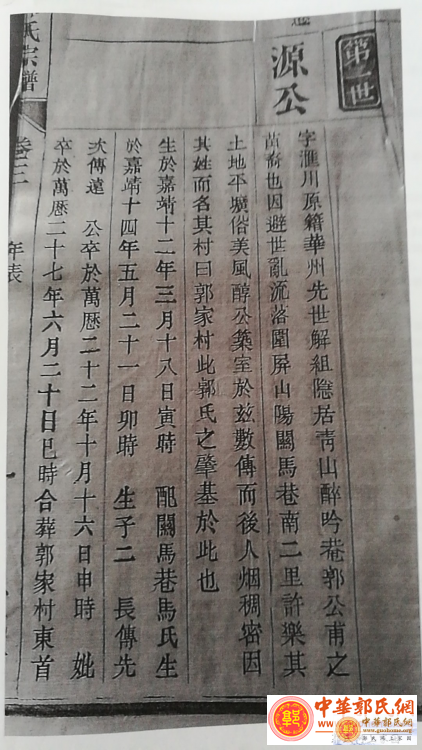 第一世
源公
字滙川原籍華州先世解組隐居靑山醉吟菴郭公甫之
苗裔也因避世亂流落圍屏山陽關馬巷南二里許樂其
土地平曠俗美風醇公築室於茲數傳而後人烟稠密因
其姓而名其村曰郭家村此郭氏之肇基於此也
生於嘉靖十二年三月十八日寅時 配關馬巷馬氏生
於嘉靖十四年五月二十一日卯時 生子二 長傳先
次傳遠 公卒於萬曆二十二年十月十六日申時 妣
卒於萬曆二十七年六月二十日巳時合葬郭家村東首
氏宗譜
卷三
年表
中華郭氏網
中華郭氏網
www.guohome.org